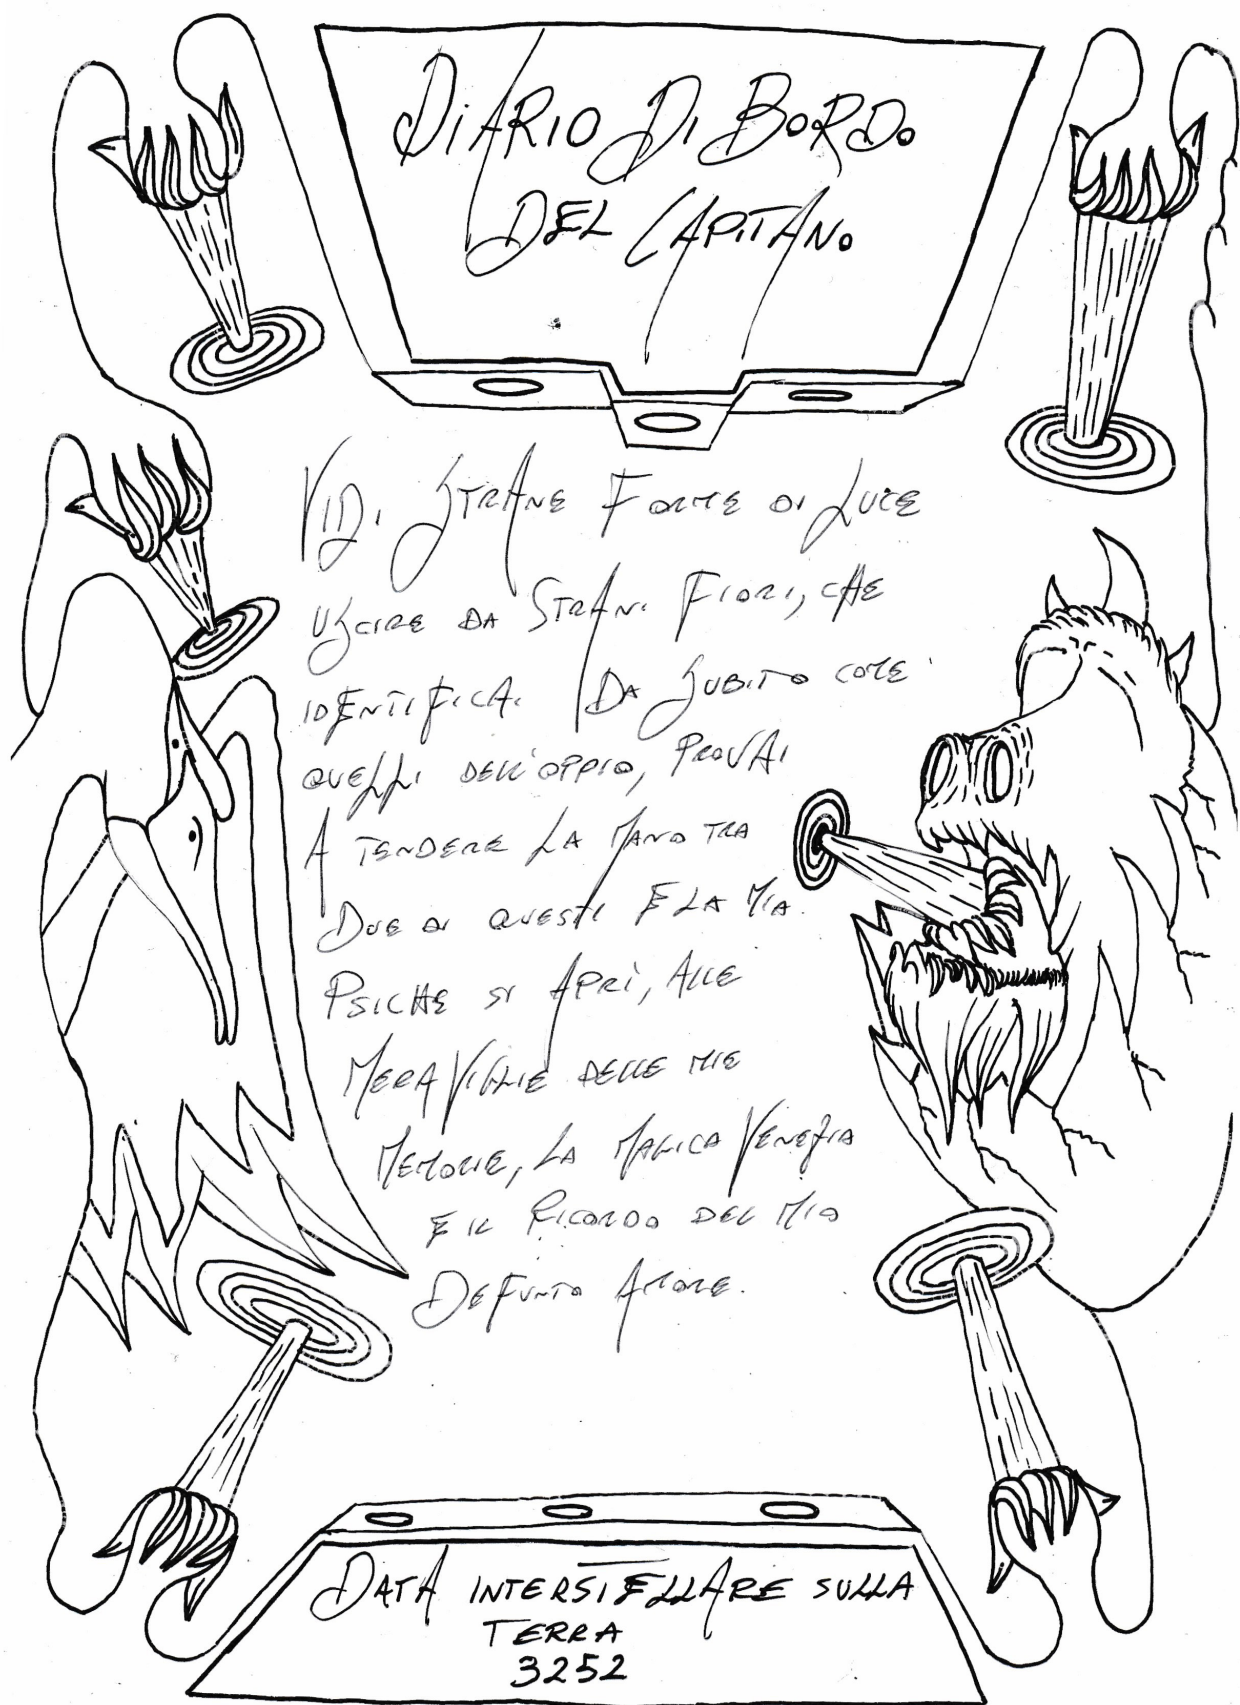 DiARIO DI BORDO
DEL CAPITANO
VIDI STRANE FORME DI LUCE
USCIRE DA STRANI FIORI, CHE
IDENTIFICAI DA SUBITO COME
QUELLI DELL'OPPIO, PROVAI
A TENDERE LA MANO TRA
DUE DI QUESTI E LA MIA
PSICHE SI APRÌ, ALLE
MERAVIGLIE DELLE MIE
MEMORIE, LA MAGICA VENEZIA
E IL RICORDO DEL MIO
DEFUNTO AMORE.
DATA INTERSTELLARE SULLA
TERRA
3252